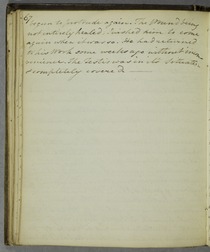 67
began to protrude again. The wound being
not entirely healed, I wished him to come
again when it was so. He had returned
to his work some weeks ago without incon
venience. The testis was in its situation
& completely covered